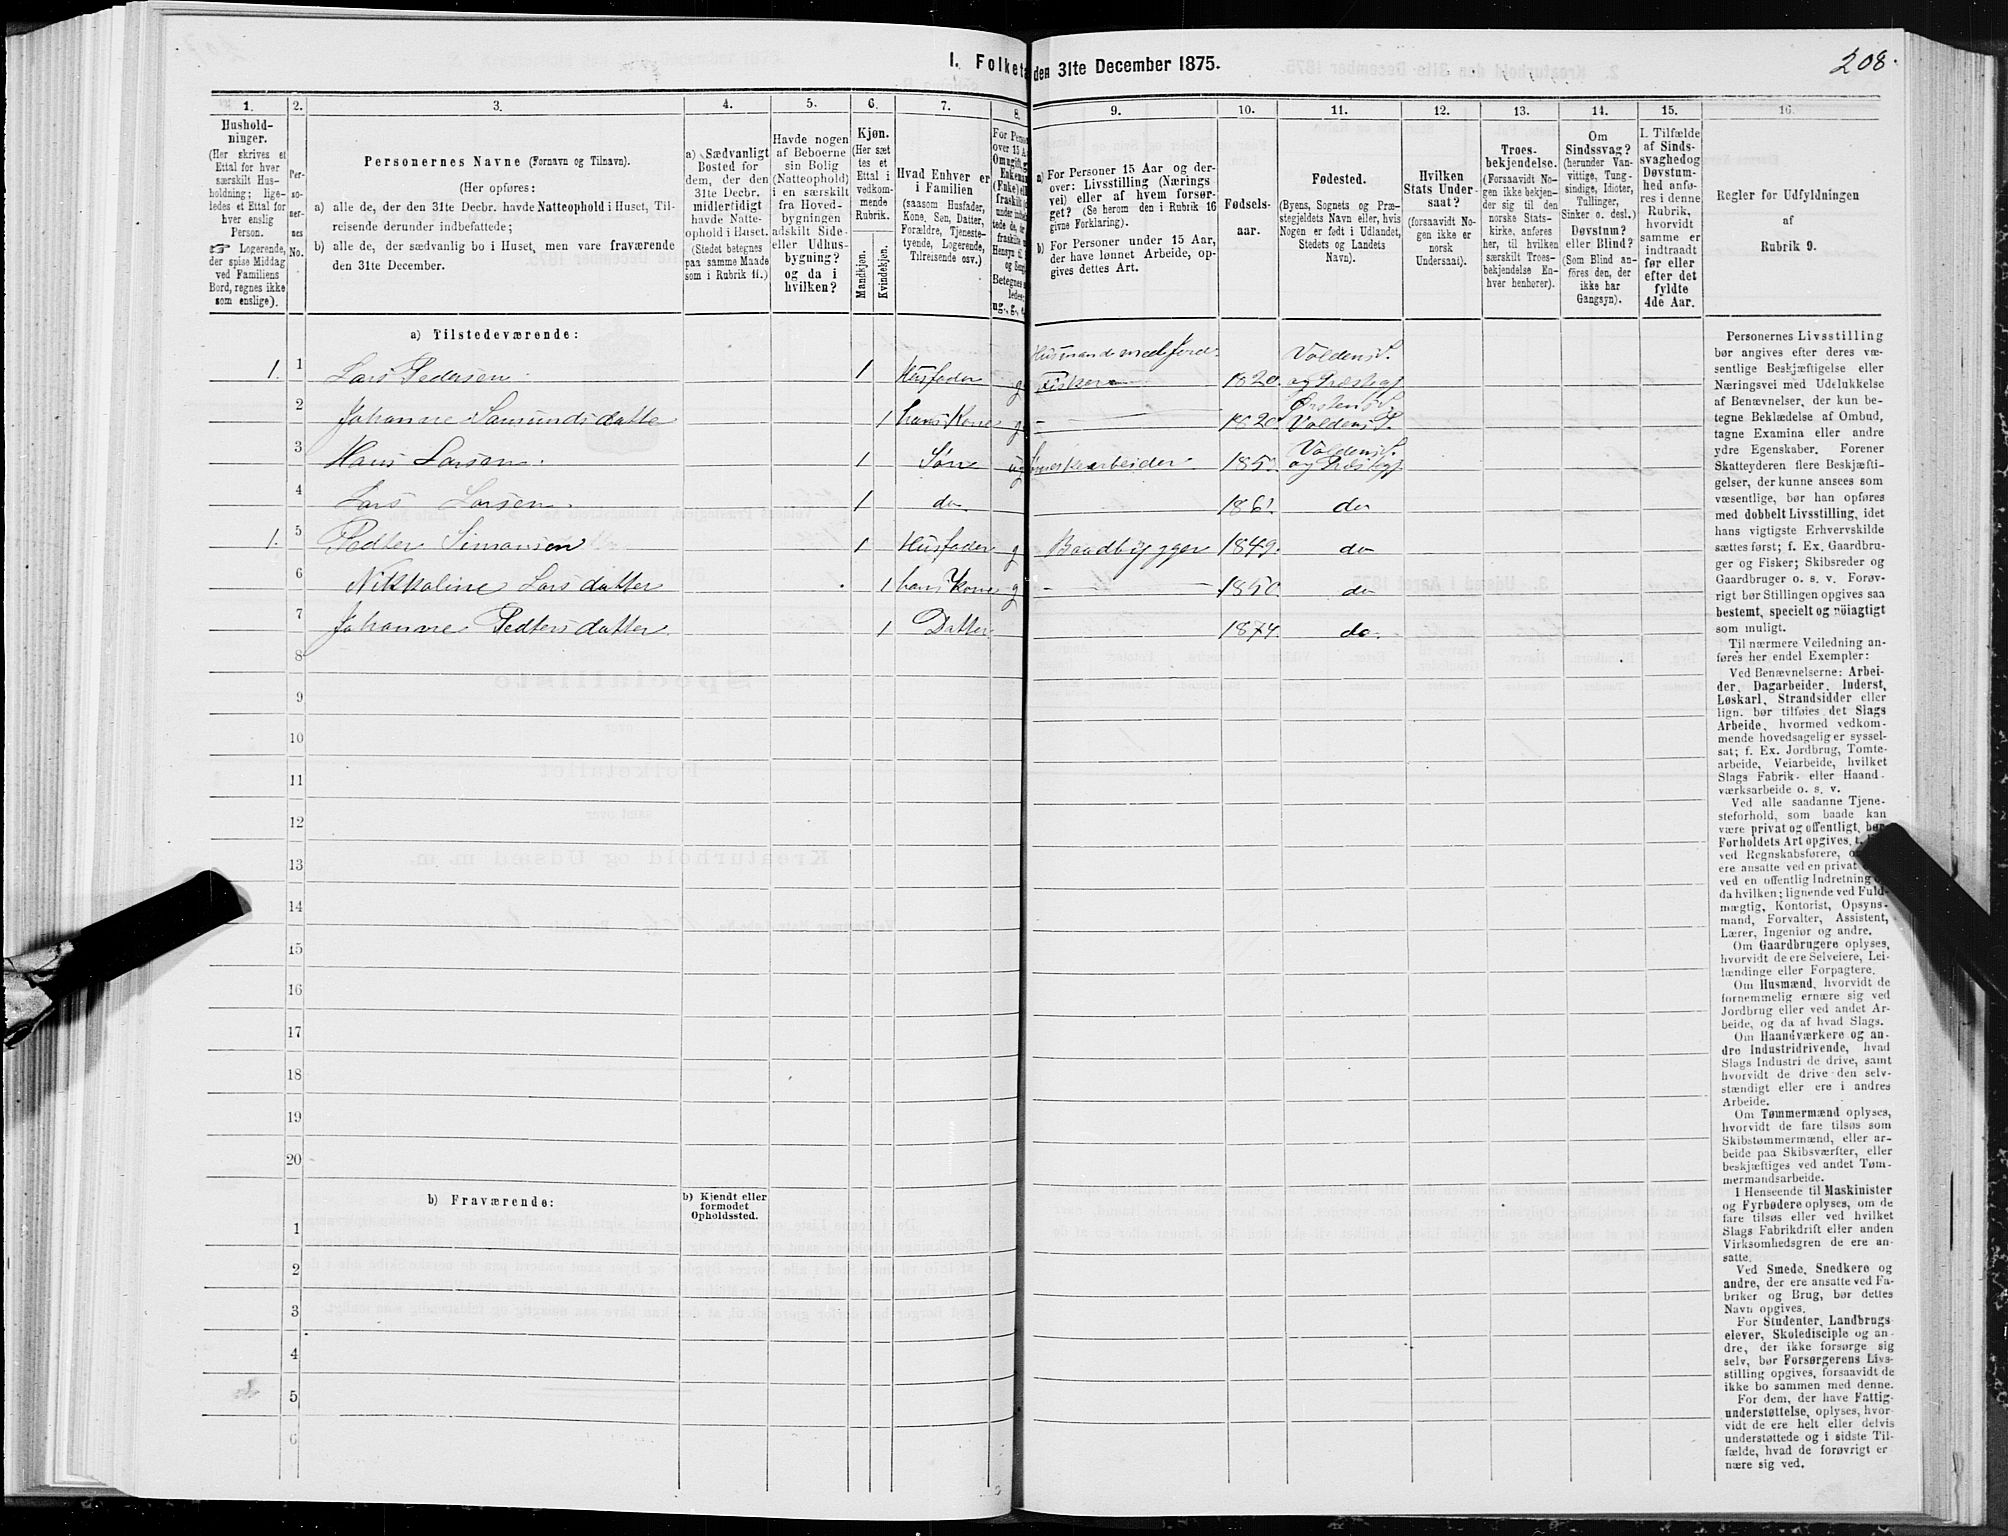 208.
1. Folketæ
den 31te December 1875.
1.
2.
3.
4.
5.
6.
7.
8.
9.
10.
11.
12.
13.
14.
15.
16.
Hushold-
ninger.
(Her skrives et
Ettal for hver
særskilt Hus-
holdning; lige-
ledes et Ettal for
hver enslig
Person.
☞ Logerende,
der spise Middag
ved Familiens
Bord, regnes ikke
som enslige).
Per-
so-
ner-
nes
No.
Personernes Navne (Fornavn og Tilnavn).
(Her opføres:
a) alle de, der den 31te Decbr. havde Natteophold i Huset, Til-
reisende derunder indbefattede;
b) alle de, der sædvanlig bo i Huset, men vare fraværende
den 31te December.
a) Sædvanligt
Bosted for
dem, der den
31te Decbr.
midlertidigt
havde Natte-
ophold i Huset.
(Stedet betegnes
paa samme Maade
som i Rubrik 11.)
Havde nogen
af Beboerne
sin Bolig
(Natteophold)
i en særskilt
fra Hoved-
bygningen
adskilt Side-
eller Udhus-
bygning?
og da i
hvilken?
Kjøn.
(Her sæt
tes et
Ettal i
vedkom-
mende
Rubrik.
Mandkjøn.
Kvindekjøn.
Hvad Enhver er
i Familien
(saasom Husfader,
Kone, Søn, Datter,
Forældre, Tjeneste-
tyende, Logerende,
Tilreisende osv.)
For Perso
over 15 A
Om ugift, g
Enkema
(Enke) ell
fraskilt
ug., g., e
a) For Personer 15 Aar og der-
over: Livsstilling (Nærings
vei) eller af hvem forsør-
get? (Se herom den i Rubrik 16
givne Forklaring).
b) For Personer under 15 Aar,
der have lønnet Arbeide, op-
gives dettes Art.
Fødsels-
aar.
Fødested.
(Byens, Sognets og Præ-
stegjeldets Navn eller, hvis
Nogen er født i Udlandet,
Stedets og Landets
Navn).
Hvilken
Stats Under-
saat?
(forsaavidt No-
gen ikke er
norsk
Undersaat).
Troes-
bekjendelse.
(Forsaavidt No-
gen ikke bekjen-
der sig til den
norske Stats-
kirke, anføres
her, til hvilken
særskilt Troes-
bekjendelse En-
hver henhører).
Om
Sindssvag?
(herunder Van-
vittige, Tung-
sindige, Idioter,
Tullinger,
Sinker o. desl.)
Døvstum?
eller Blind?
(Som Blind an-
føres den, der
ikke har
Gangsyn).
I. Tilfælde
af Sinds-
svaghed og
Døvstum-
hed anfø-
res i denne
Rubrik,
hvorvidt
samme er
indtraadt
før eller
efter det
fyldte
4de Aar.
Regler for Udfyldningen
af
Rubrik 9.
a) Tilstedeværende:
1. 1 Lars Pedersen. 1 Husfader g Husmand med jord. Fisker 1820. Voldens S. og Præstegj
2 Johanne Samundsdatter 1 hans Kone g - 1820 Ørstens S. Voldens P.
3 Hans Larsen. 1 Søn ug 185 Voldens S. og Præstegj
4 Lars Larsen. 1 do 1861. do
1. 5 Pedter Simonsen 1 Husfader g Baadbygger 1849. do
6 Nikkoline Larsdatter 1 hans Kone g - 1850 do
7 Johanne Pedtersdatter. 1 Datter 1874. do.
8
9
10
11
12
13
14
15
16
17
18
19
20
b) Fraværende:
b) Kjendt eller
formodet
Opholdssted.
1
2
3
4
5
6
Personernes Livsstilling
bør angives efter deres væ-
sentlige Beskjæftigelse eller
Næringsvei med Udelukkelse
af Benævnelser, der kun be-
tegne Beklædelse af Ombud,
tagne Examina eller andre
ydre Egenskaber. Forener
Skatteyderen flere Beskjæfti-
gelser, der kunne ansees som
væsentlige, bør han opføres
med dobbelt Livsstilling, idet
hans vigtigste Erhvervskilde
sættes først; f. Ex. Gaardbru-
ger og Fisker; Skibsreder og
Gaardbruger o. s. v. Forøv-
rigt bør Stillingen opgives saa
bestemt, specielt og nöiagtigt
som muligt.
Til nærmere Veiledning an-
føres her endel Exempler:
Ved Benævnelserne: Arbei-
der, Dagarbeider, Inderst,
Løskarl, Strandsidder eller
lign. bør tilføies det Slags
Arbeide, hvormed vedkom-
mende hovedsagelig er syssel-
sat; f. Ex. Jordbrug, Tomte-
arbeide, Veiarbeide, hvilket
Slags Fabrik- eller Haand-
værksarbeide o. s. v.
Ved alle saadanne Tjene-
steforhold, som baade kan
være privat og offentligt, bør
Forholdets Art opgives, t.
ved Regnskabsførere, o
ere ansatte ved en privat
ved en offentlig Indretning
da hvilken; lignende ved Fuld-
mægtig, Kontorist, Opsyns-
mand, Forvalter, Assistent,
Lærer, Ingeniør og andre.
Om Gaardbrugere oplyses,
hvorvidt de ere Selveiere, Lei-
lændinge eller Forpagtere.
Om Husmænd, hvorvidt de
fornemmelig ernære sig ved
Jordbrug eller ved andet Ar-
beide, og da af hvad Slags.
Om Haandværkere og an-
dre Industridrivende, hvad
Slags Industri de drive, samt
hvorvidt de drive den selv-
stændigt eller ere i andres
Arbeide.
Om Tømmermænd oplyses,
hvorvidt de fare tilsøs som
Skibstømmermænd, eller ar-
beide paa Skibsværfter, eller
beskjæftiges ved andet Tøm-
mermandsarbeide.
I Henseende til Maskinister
og Fyrbødere oplyses, om de
fare tilsøs eller ved hvilket
Slags Fabrikdrift eller anden
Virksomhedsgren de ere an-
satte.
Ved Smede, Snedkere og
andre, der ere ansatte ved Fa-
briker og Brug, bør dettes
Navn opgives.
For Studenter, Landbrugs-
elever, Skoledisciple og an-
dre, der ikke forsørge sig
selv, bør Forsørgerens Livs-
stilling opgives, forsaavidt de
ikke bo sammen med denne.
For dem, der have Fattig-
understøttelse, oplyses, hvor-
vidt de ere helt eller delvis
understøttede og i sidste Til-
fælde, hvad de forøvrigt er
nære sig ved.